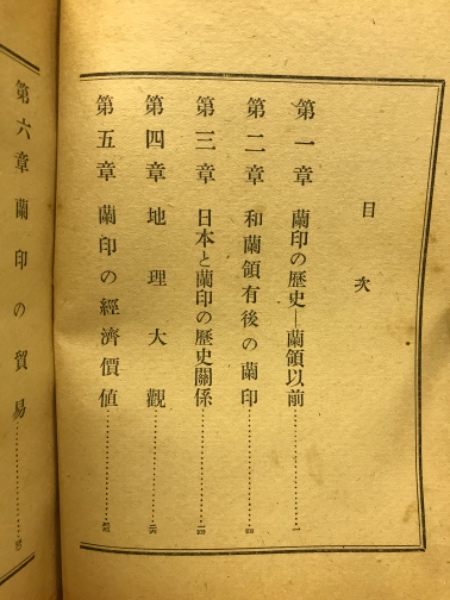 目次
第一章 蘭印の歷史―蘭領以前……………一
第二章 和蘭領有後の蘭印……………
第三章 日本と蘭印の歷史關係……………
第四章 地理大觀……………
第五章 蘭印の經濟價値……………
第六章 蘭印の貿易……………